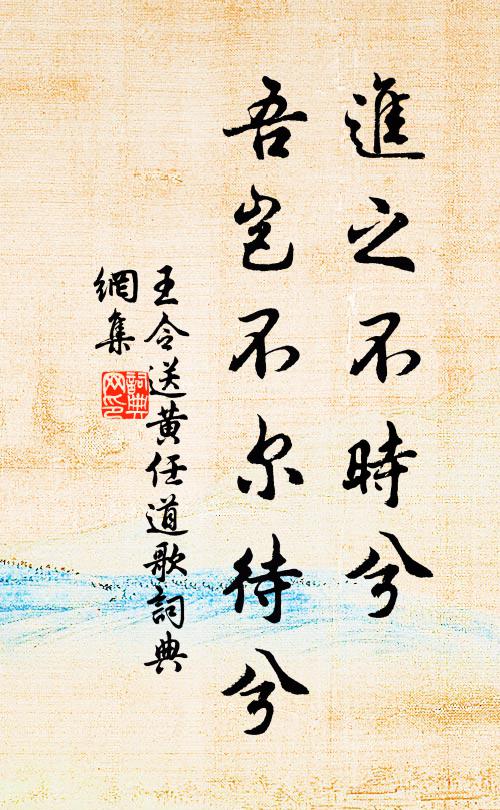 進之不時兮
吾豈不尔待兮
王令送黄任道歌詞典
網集
詞典
网印